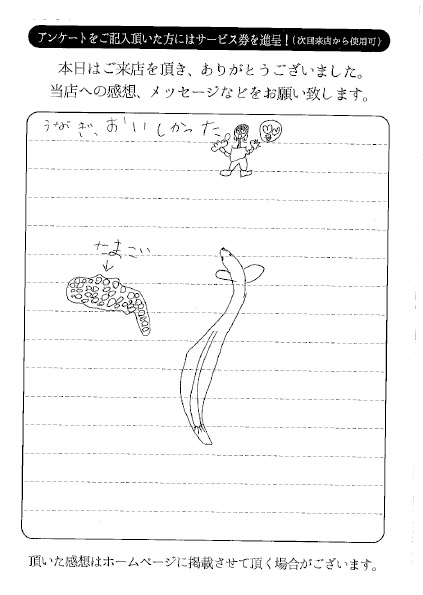 アンケートをご記入頂いた方にはサービス券を進呈！(次回来店から使用可)
本日はご来店を頂き、ありがとうございました。
当店への感想、メッセージなどをお願い致します。
うなぎ、おいしかった
たまごい
頂いた感想はホームページに掲載させて頂く場合がございます。